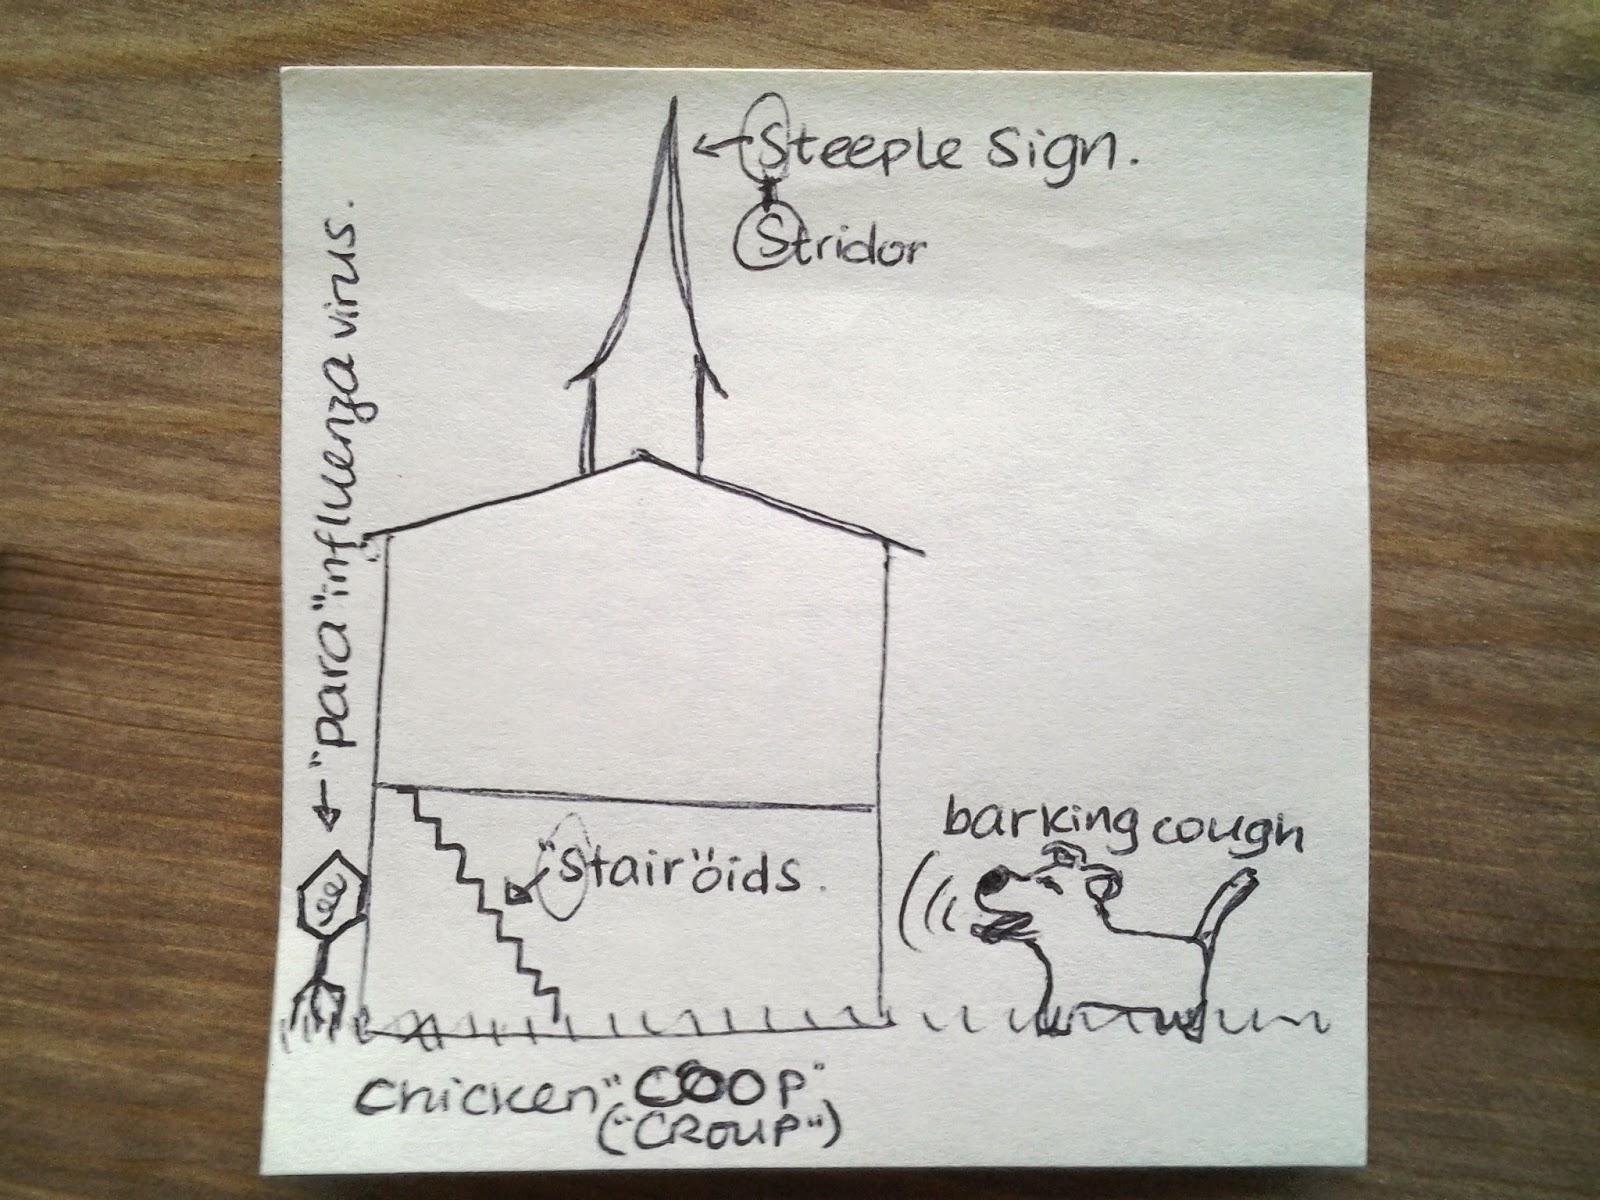 Steeple Sign.
Stridor
"para"influenza virus.
"Stair"oids.
barking cough
Chicken "COOP"
("CROUP")